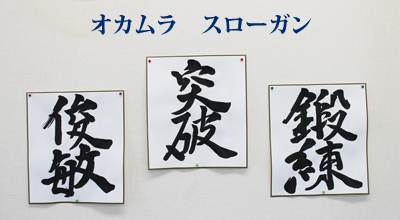 オカムラ　スローガン
俊敏
突破
鍛練